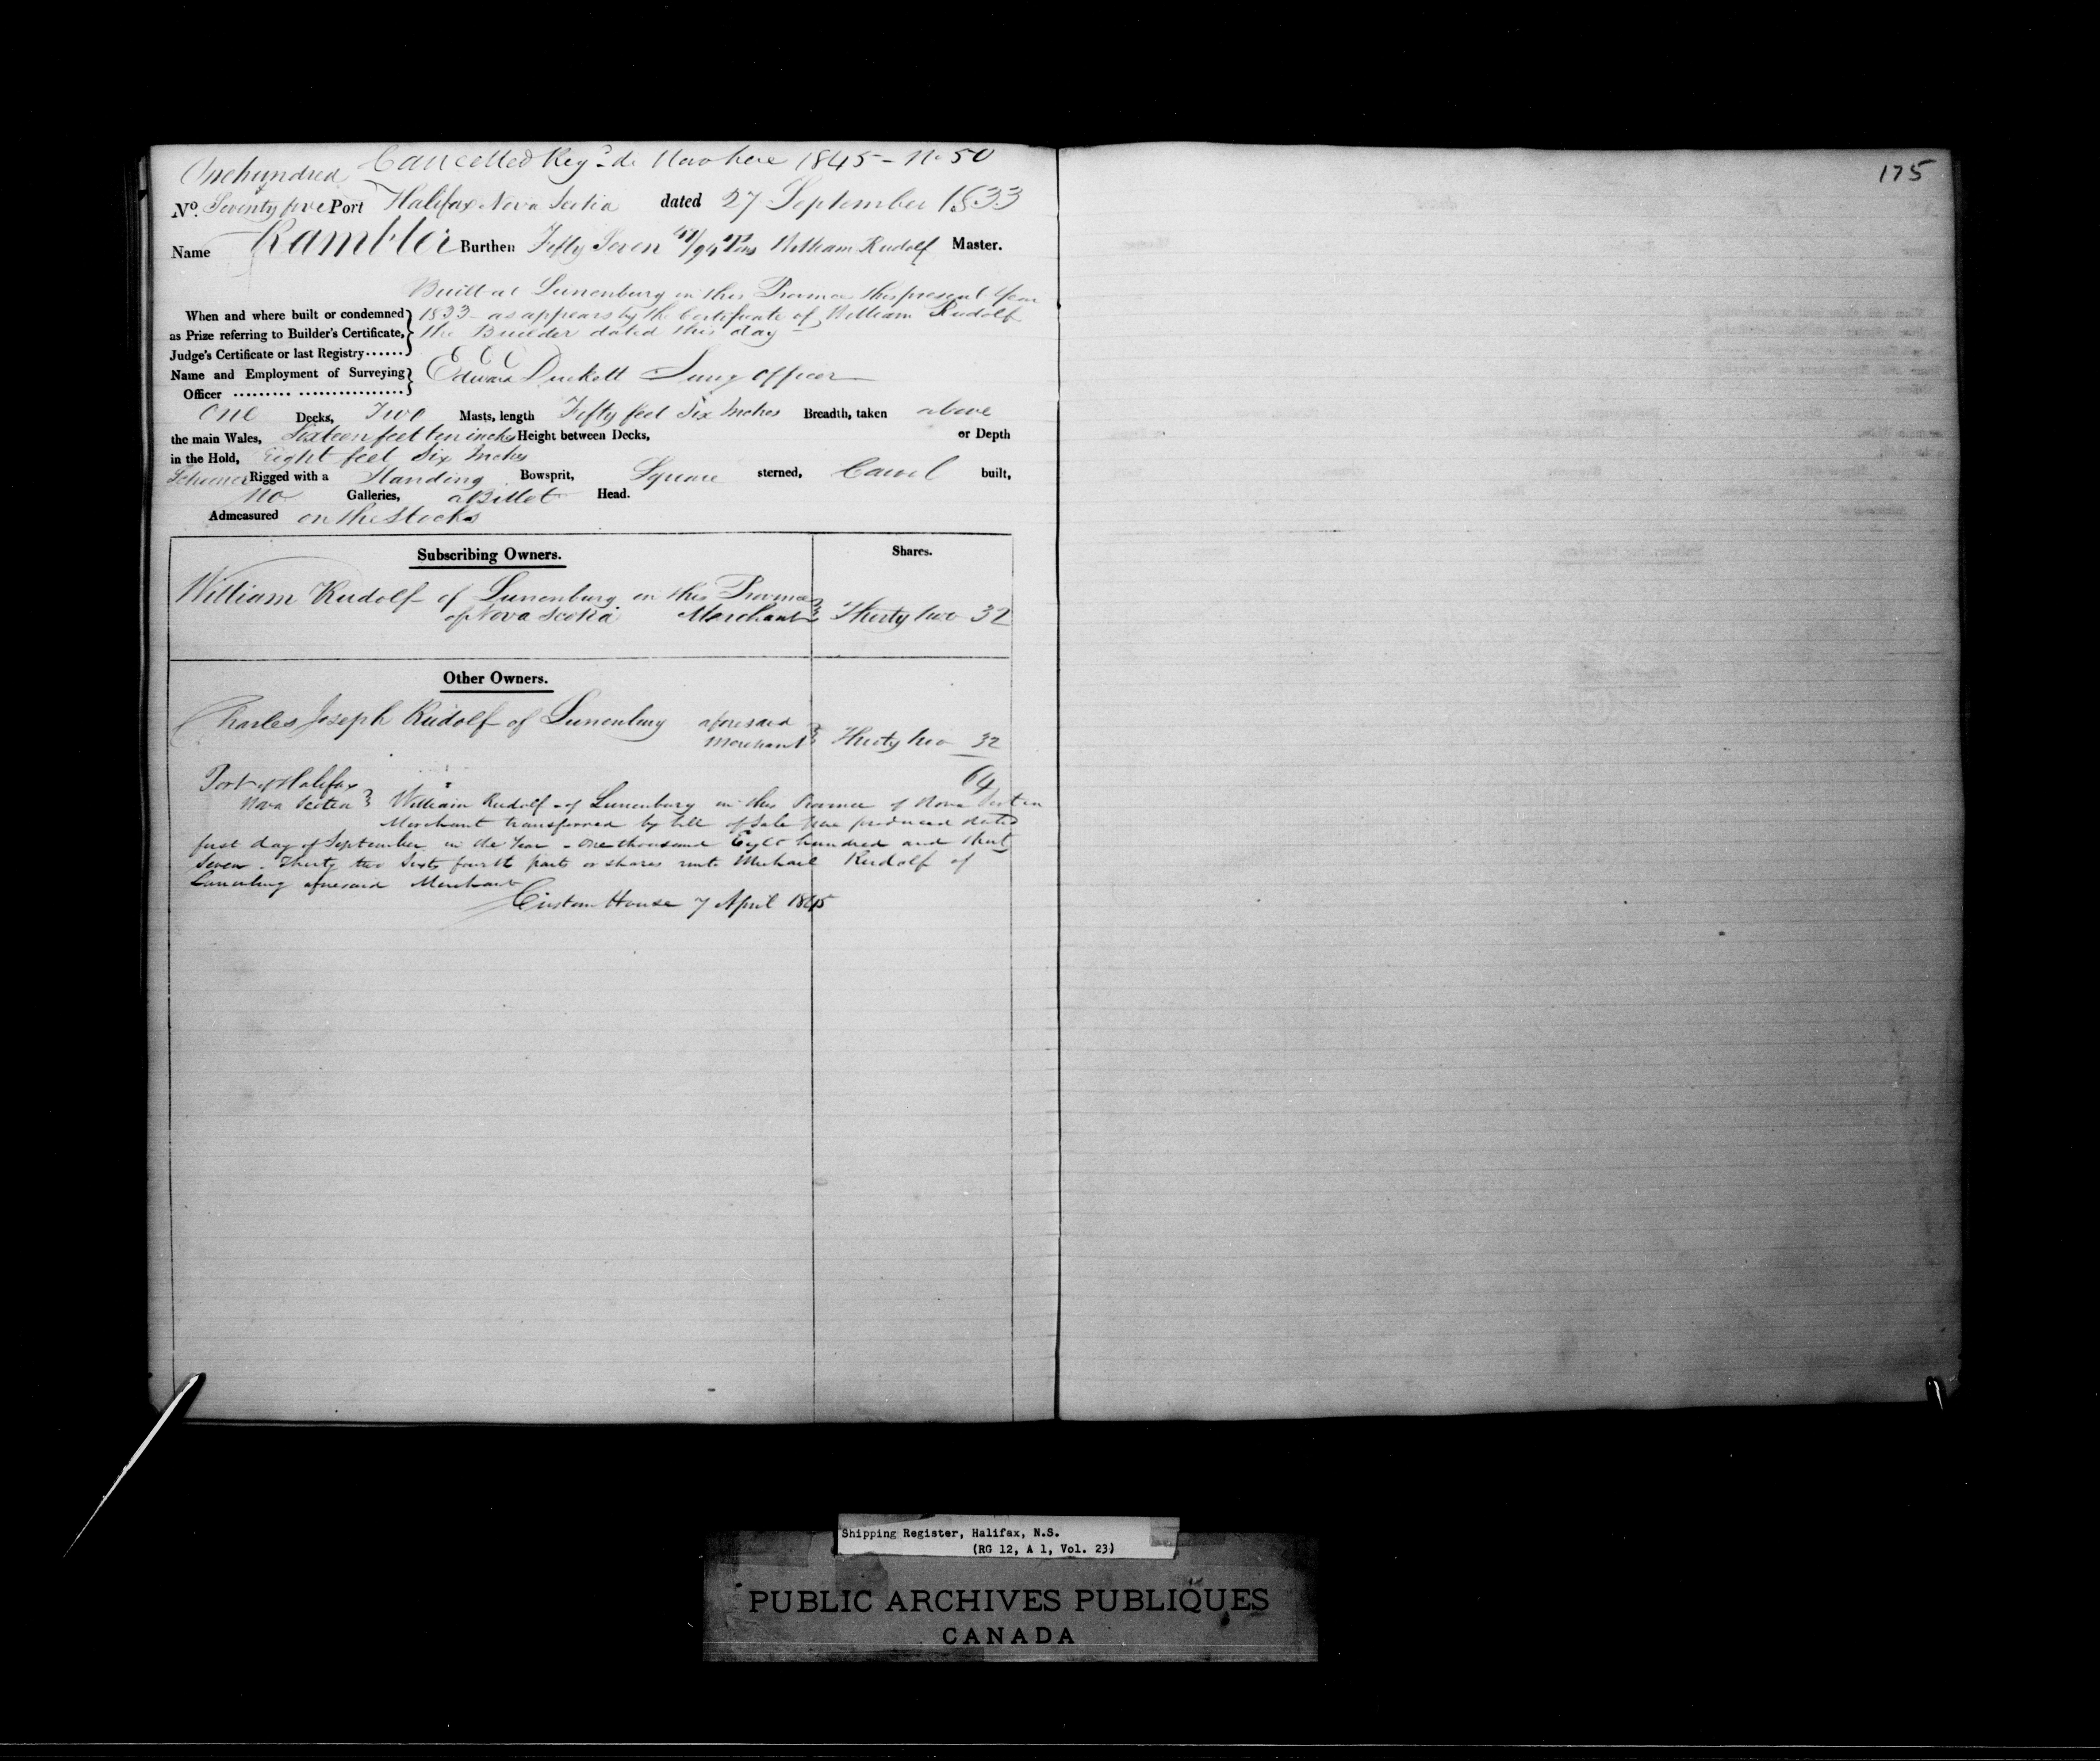 Cancelled Reg.d de Novo here 1845 - No 50
175
One hundred &
No. Seventy five Port Halifax Nova Scotia dated 27 September 1833
Name Rambler Burthen Fifty Seven /94 Tons William Rudolf Master.
Built at Lunenburg in this Province this present Year
When and where built or condemned 1833 - as appears by the Certificate of William Rudolf
as Prize referring to Builder's Certificate, the Builder dated this day -
Judge's Certificate or last Registry......
Name and Employment of Surveying Edward Duckett Surv.g officer
Officer ......... ................
One Decks, Two Masts, length Fifty feet Six Inches Breadth, taken above
the main Wales, Sixteen feet ten inches Height between Decks, or Depth
in the Hold, Eight feet Six Inches
Schooner Rigged with a Standing Bowsprit, Square sterned, Carvel built,
No Galleries, a Billet Head.
Admeasured on the Stocks
Subscribing Owners. Shares.
William Rudolf of Lunenburg in this Province
of Nova Scotia Merchant Thirty two 32
Other Owners.
Charles Joseph Rudolf of Lunenburg aforesaid
Merchant Thirty two 32
64
Port of Halifax
Nova Scotia } William Rudolf of Lunenburg in this Province of Nova Scotia
Merchant transferred by bill of Sale here produced dated
first day of September in the Year - One thousand Eight hundred and thirty
Seven - Thirty two Sixty fourth parts or shares unto Michael Rudolf of
Lunenburg aforesaid Merchant
Custom House 7 April 1845
Shipping Register, Halifax, N.S.
(RG 12, A 1, Vol. 23)
PUBLIC ARCHIVES PUBLIQUES
CANADA